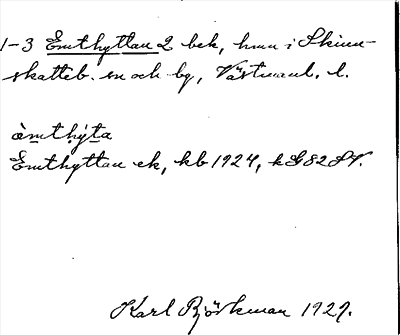 1-3 Emthyttan 2 bek, hmn i Skinn-
skatteb. sn och by, Västmanl. l.
ämthýta
Emthyttan ek, kb 1924, k G82SV.
Karl Björkman 1929.